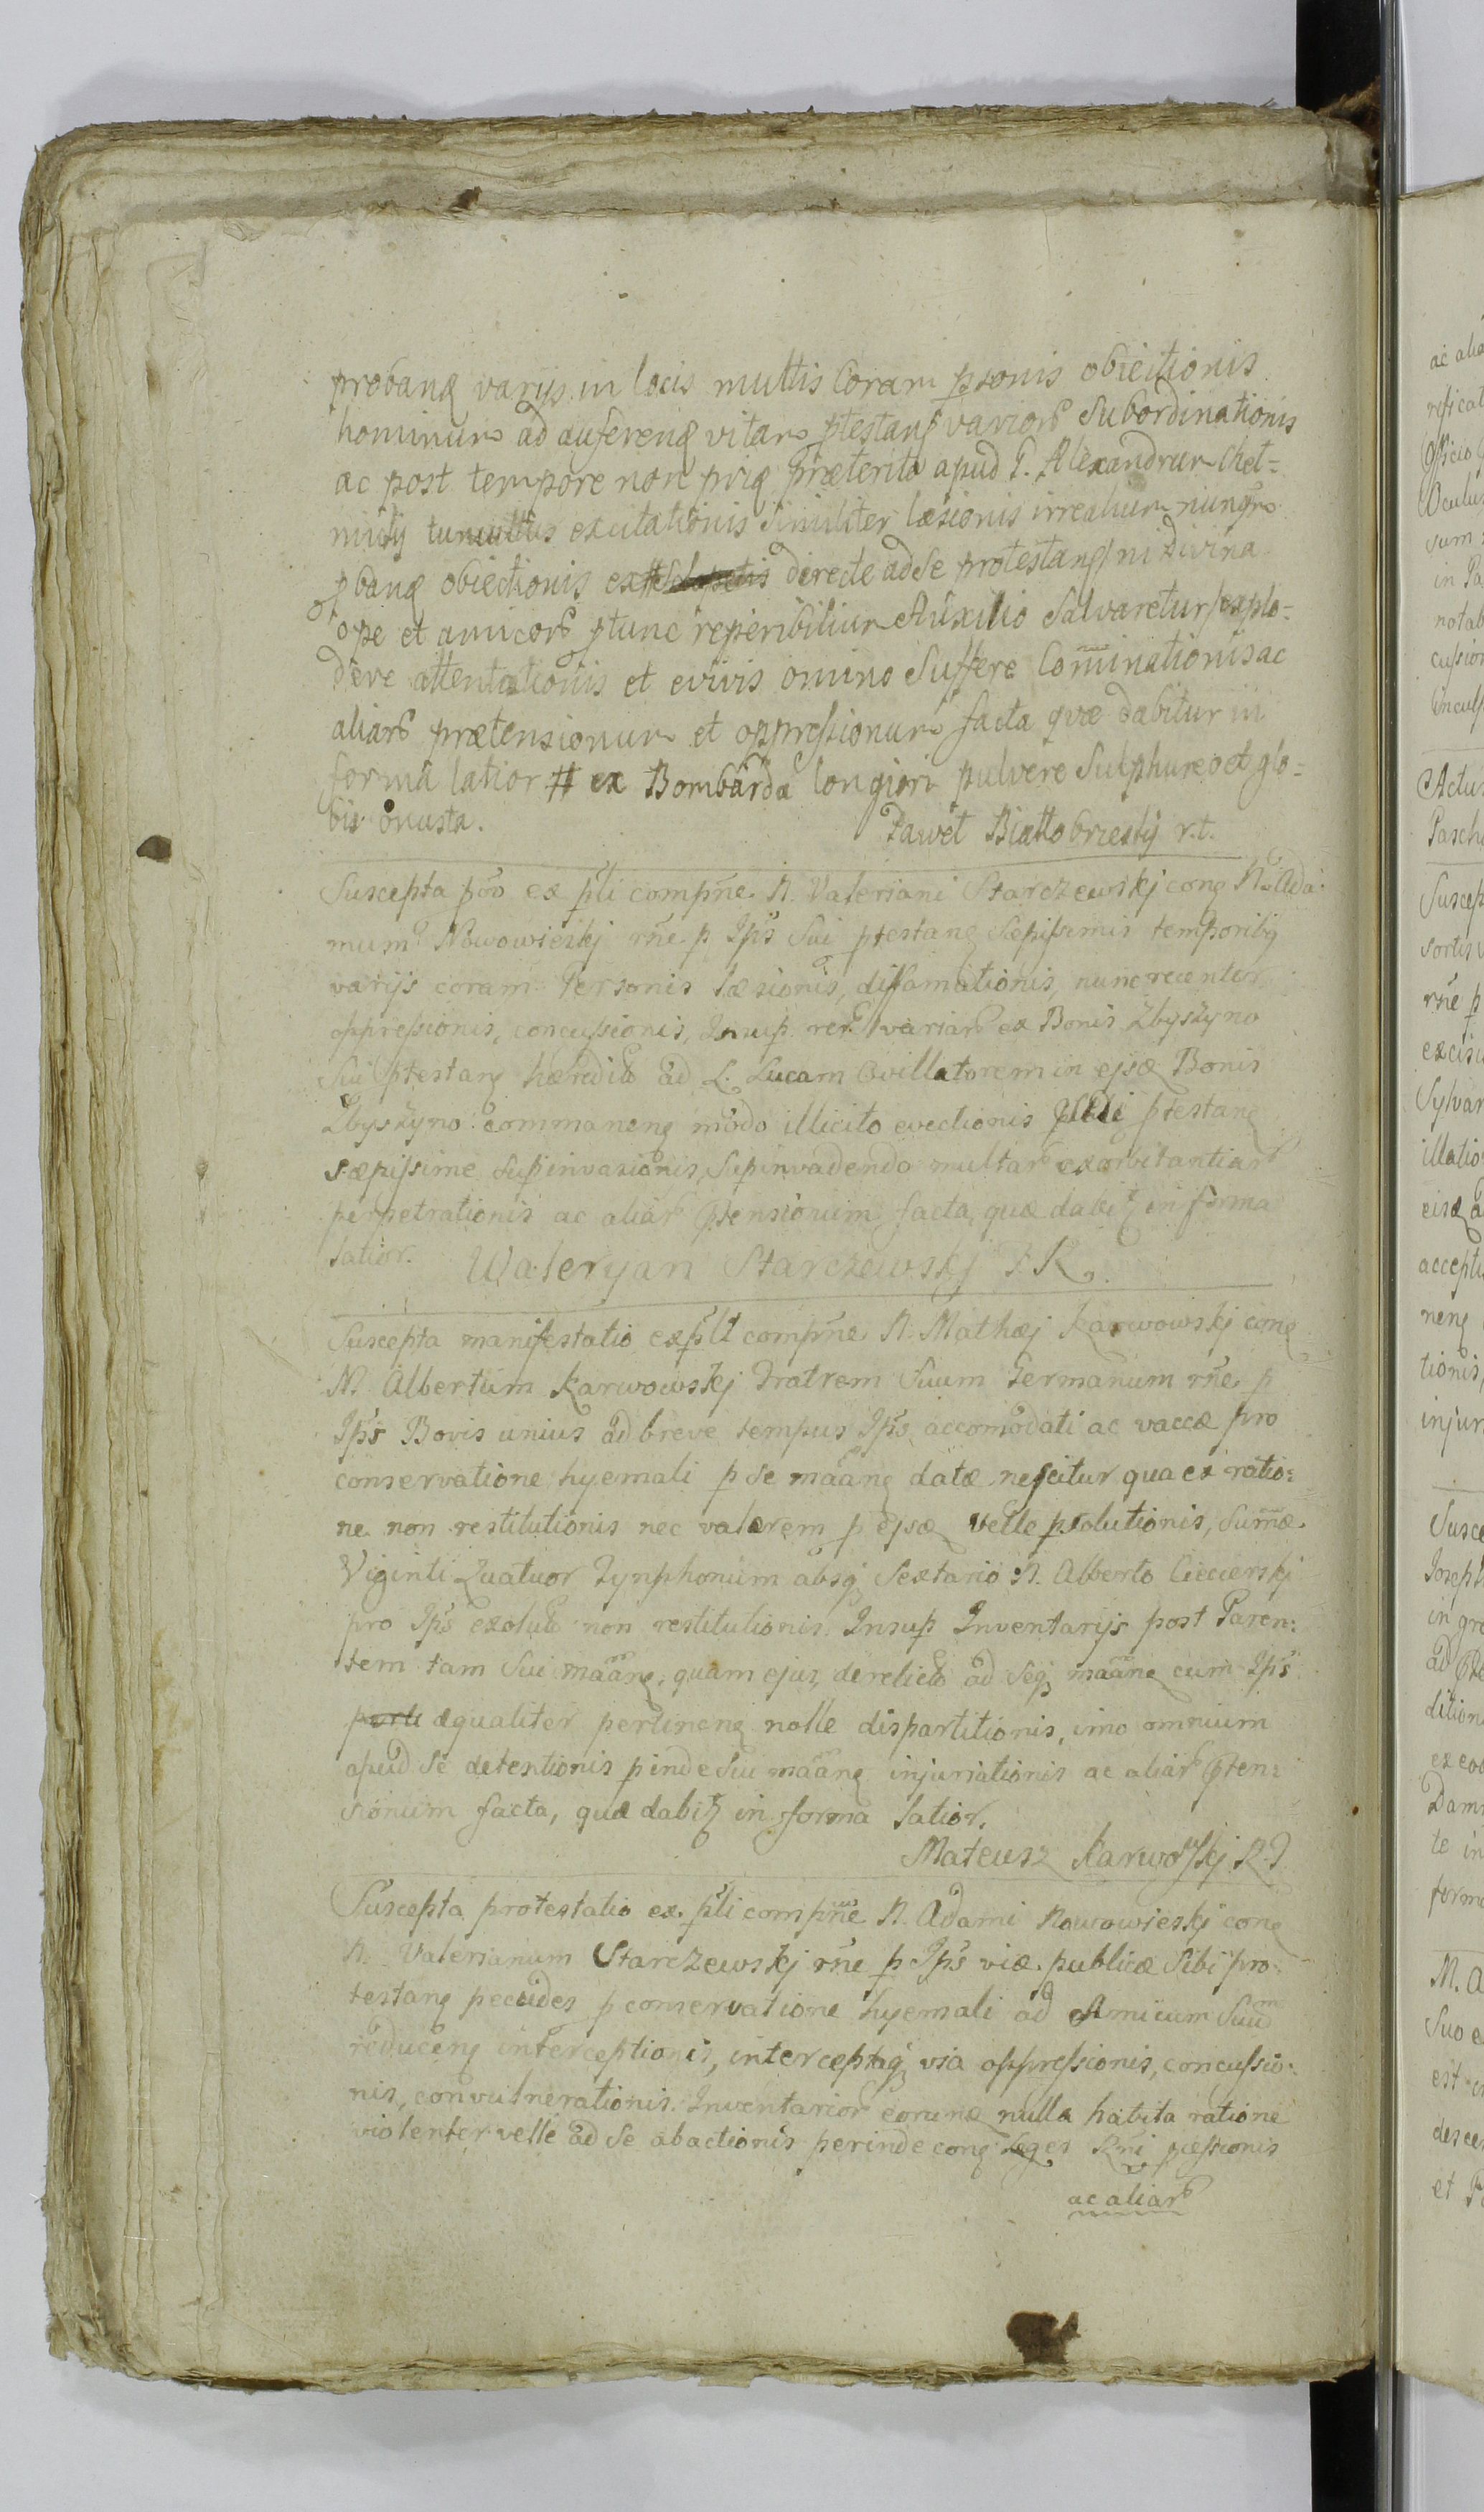 probanꝗ varijs in locis multis Coram psonis obiectionis
hominum ad auferenꝗ vitam ptestanꝗ varior Subordinationis
ac post tempore non priꝗ præterito apud G. Alexandrum Chet=
nicij tumultus excitationis Similiter læsionis
pbanꝗ obiectionis ex # directe ad Se protestanꝗ ni Divina
ope et amicor ptunc reperibilium Auxilio Salvaretur explo=
dere attentationis et evivis omino Suffere Cominationis ac
aliar prætensionum et oppressionum facta qvæ dabitur in
formâ latior # ex Bombarda longiori pulvere Sulphureo et glo=
bis onusta. Paweł Białłobrzeskij r.t.
Suscepta pro ex pti comprne. N. Valeriani Starczewskj conꝗ N. Ada:
mum Nowowieskj rne p Ips Sui ptestanꝗ Sæpissimis temporibꝗ
varijs coram Personis læsionis, diffamationis, nunc recenter
oppressionis, concussionis, Insup. rer variar ex Bonis Zbyszyno
Sui ptestanꝗ hæredit ad L. Lucam Ovillatorem in ejsꝗ Bonis
Zbyszyno commanenꝗ modo illicito evectionis ptestanꝗ
sæpissime Supinvasionis, Supinvadendo multar exorbitantiar
perpetrationis ac aliar ptensionum facta, quæ dabitꝫ in forma
latior. Waleryan Starczewskj P. K.
Suscepta manifestatio ex plt comprne N. Mathæj Karwowskj conꝗ
N. Albertum Karwowskj Fratrem Suum Germanum rne p
Ips Bovis unius ad breve tempus Ips accomodati ac vaccæ pro
conservatione hyemali p Se maanꝗ datæ nescitur qua ex ratio:
ne non restitutionis nec valorem p ejsꝗ velle psolutionis, Sumæ
Viginti Quatuor Tynphonum absꝗ Sextario N. Alberto Ciecierskj
pro Ips exolut non restitutionis. Insup Inventarijs post Paren:
tem tam Sui maanꝗ, quam ejus, derelict ad Seꝗ maanꝗ cum Ips
parti æqualiter pertinenꝗ nolle dispartitionis, imo omnium
apud Se detentionis pinde Sui maanꝗ injuriationis ac aliar pten:
sionum facta, quæ dabitꝫ in forma latior.
Mateusz Karwoskj R.P
Suscepta protestatio ex pti comprne N. Adami Nowowieskj conꝗ
N. Valerianum Starczewskj rne p Ips viæ publicæ Sibi pro:
testanꝗ pecudes p conservatione hyemali ad Amicum Suum
reducenꝗ interceptionis, interceptaꝗ via oppressionis, concussio:
nis, convulnerationis. Inventarior eorunꝗ nulla habita ratione
violenter velle ad Se abactionis perinde conꝗ Leges Rni
ac aliar